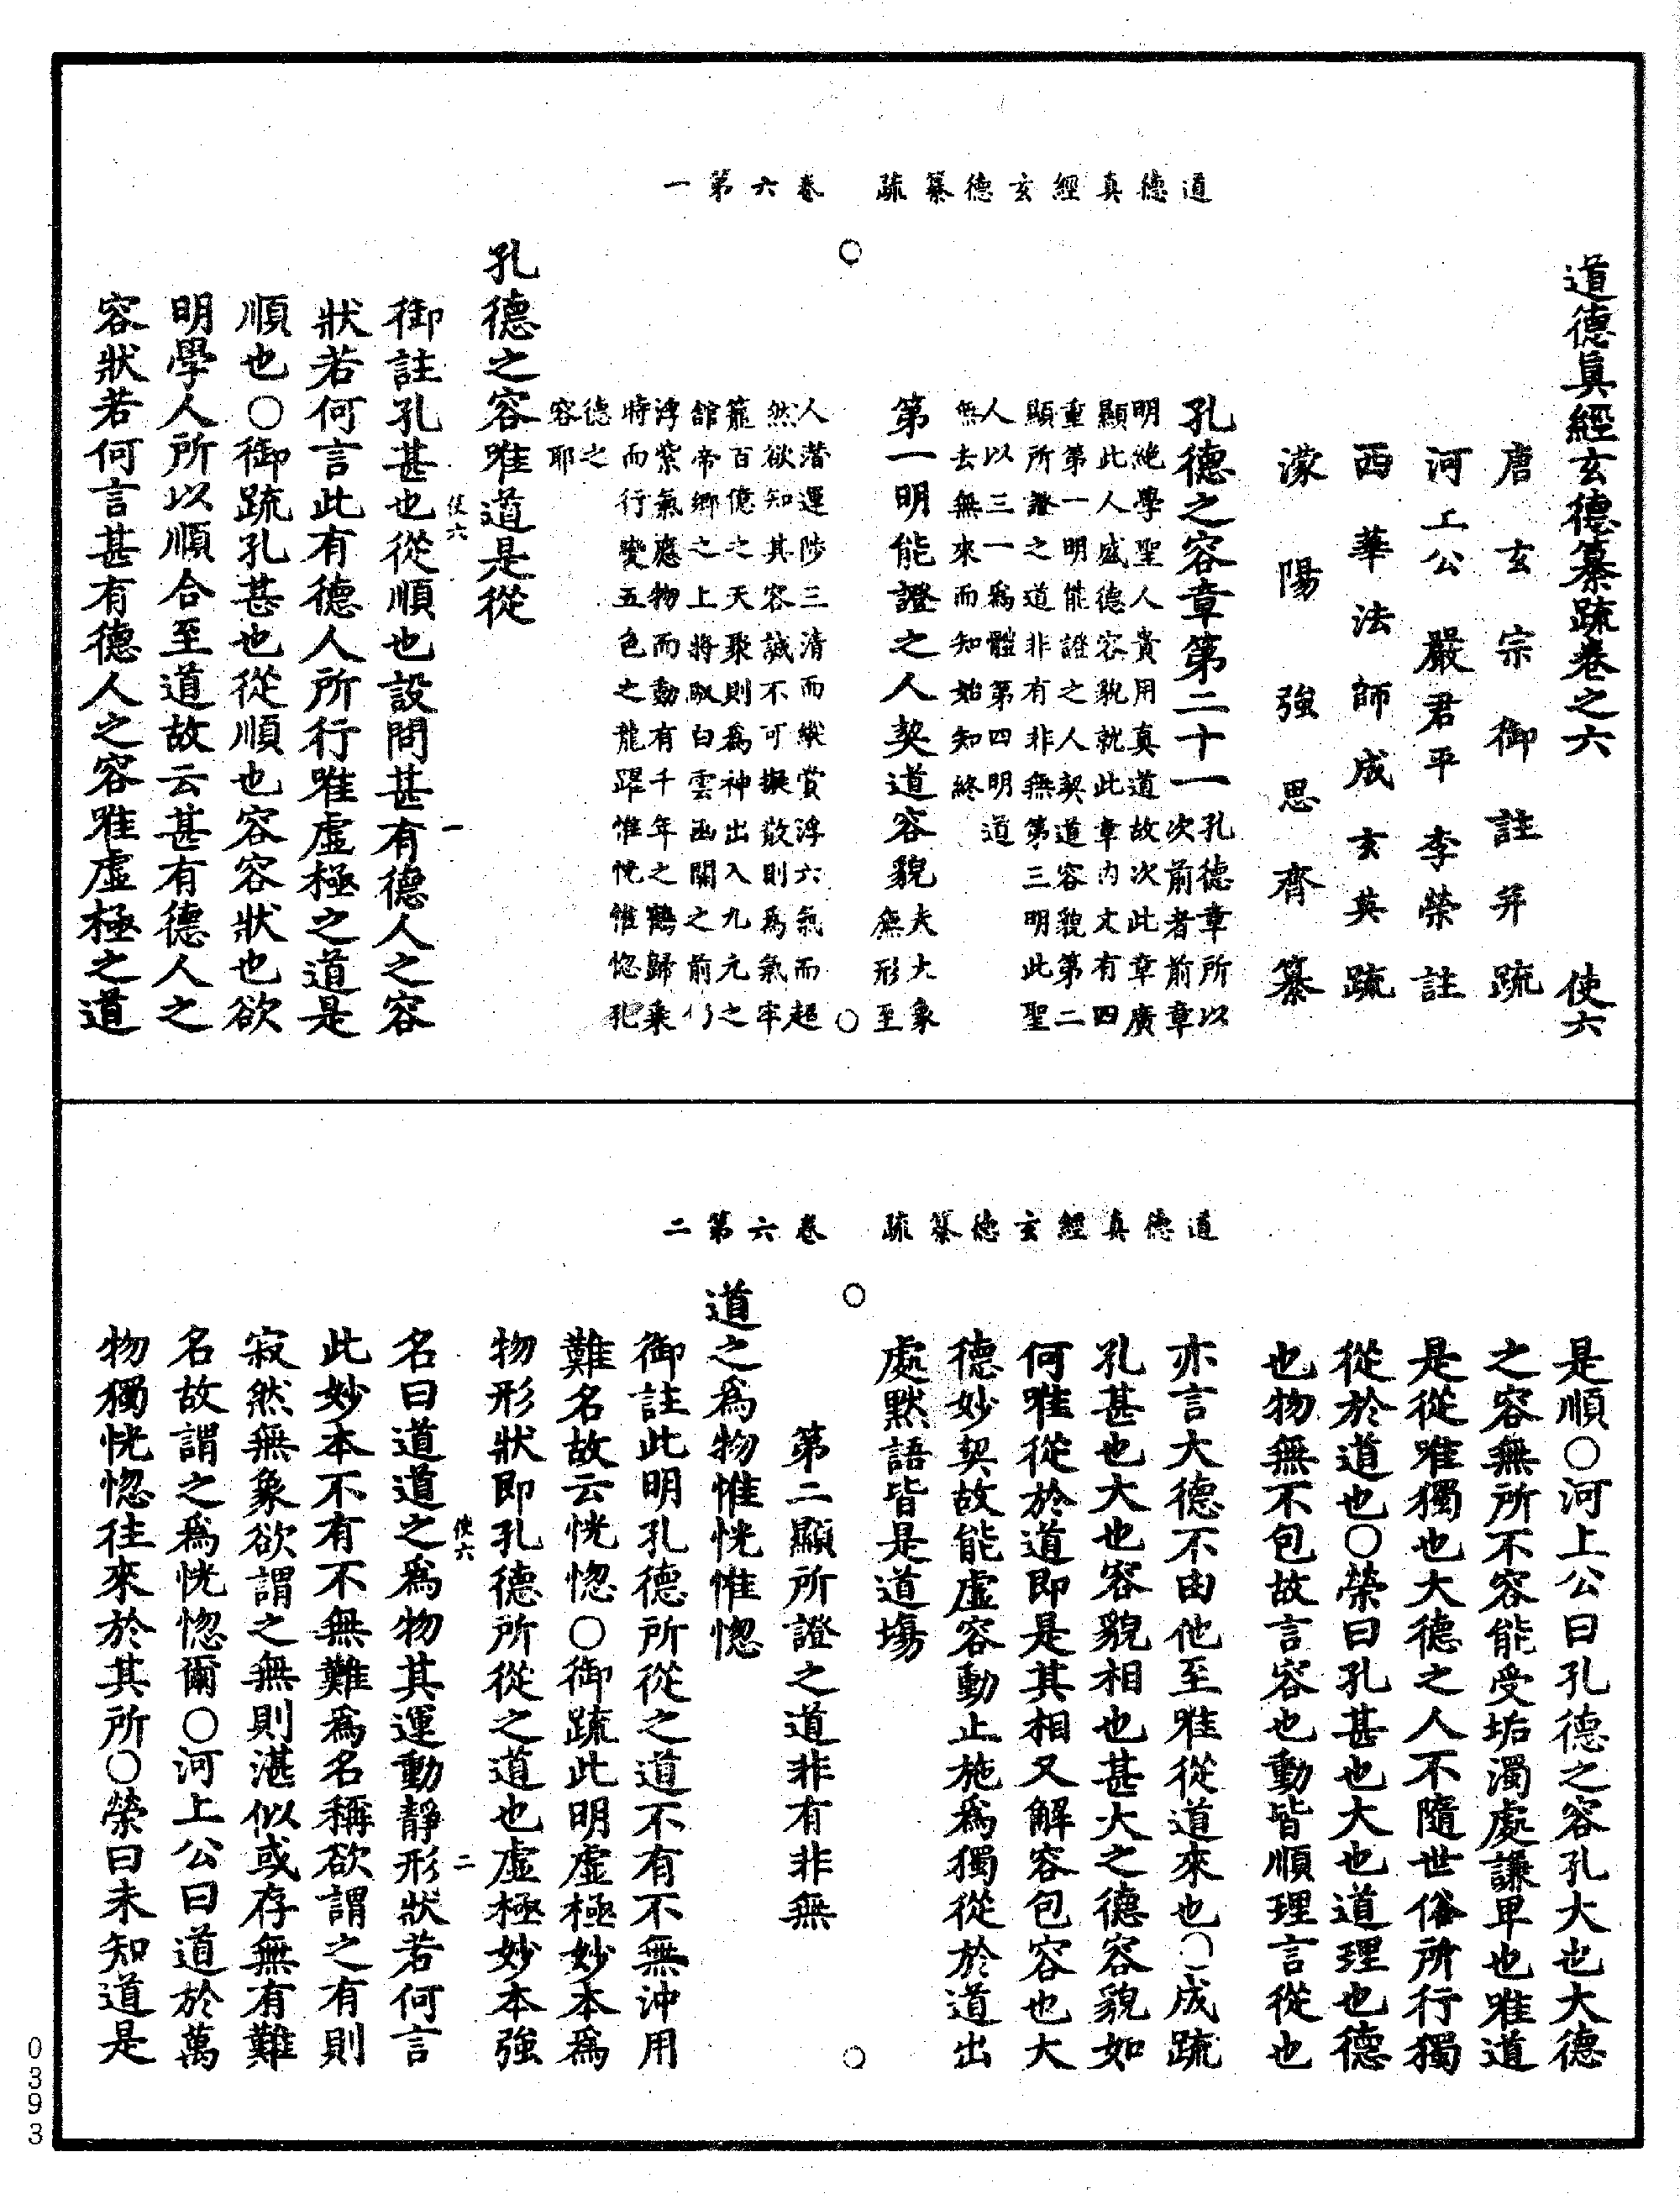 道德真經玄德纂疏　卷六第一
道德眞經玄德纂疏卷之六　使六
唐玄宗御註并疏
河上公嚴君平李榮註
西華法師成玄英疏
濛陽強思齊纂
孔德之容章第二十一
孔德章所以
次前者前章
明絶學聖人貴用真道故次此章廣
顯此人盛德容貌就此章内文有四
重第一明能證之人契道容貌第二
顯所證之道非有非無第三明此聖
人以三一爲體第四明道
無去無來而知始知終
第一明能證之人契道容貌
夫大象
無形至
人潛運陟三清而縱賞浮六氣而超
然欲知其容誠不可擬散則爲氣牢
籠百億之天聚則爲神出入九元之
館帝鄉之上將馭白雲函關之前
浮紫氣應物而動有千年之鶴歸乗
時而行變五色之龍躍惟恍惟惚孔
德之
容耶
孔德之容唯道是從
御註孔甚也從順也設問甚有德人之容
狀若何言此有德人所行唯虛極之道是
順也○御疏孔甚也從順也容容狀也欲
明學人所以順合至道故云甚有德人之
容狀若何言甚有德人之容唯虛極之道
使六　一
道德真經玄德纂疏　卷六第二
是順○河上公曰孔德之容孔大也大德
之容無所不容能受垢濁處謙卑也唯道
是從唯獨也大德之人不隨世俗所行獨
從於道也○榮曰孔甚也大也道理也德
也物無不包故言容也動皆順理言從也
亦言大德不由他至唯從道來也○成疏
孔甚也大也容貌相也甚大之德容貌如
何唯從於道即是其相又解容包容也大
德妙契故能虛容動止施爲獨從於道出
處默語皆是道場
第二顯所證之道非有非無
道之爲物惟恍惟惚
御註此明孔德所從之道不有不無沖用
難名故云恍惚○御疏此明虛極妙本爲
物形狀即孔德所從之道也虛極妙本強
名曰道道之爲物其運動靜形狀若何言
此妙本不有不無難爲名稱欲謂之有則
寂然無象欲謂之無則湛似或存無有難
名故謂之爲恍惚爾○河上公曰道於萬
物獨恍惚往來於其所○榮曰未知道是
使六　二
0393